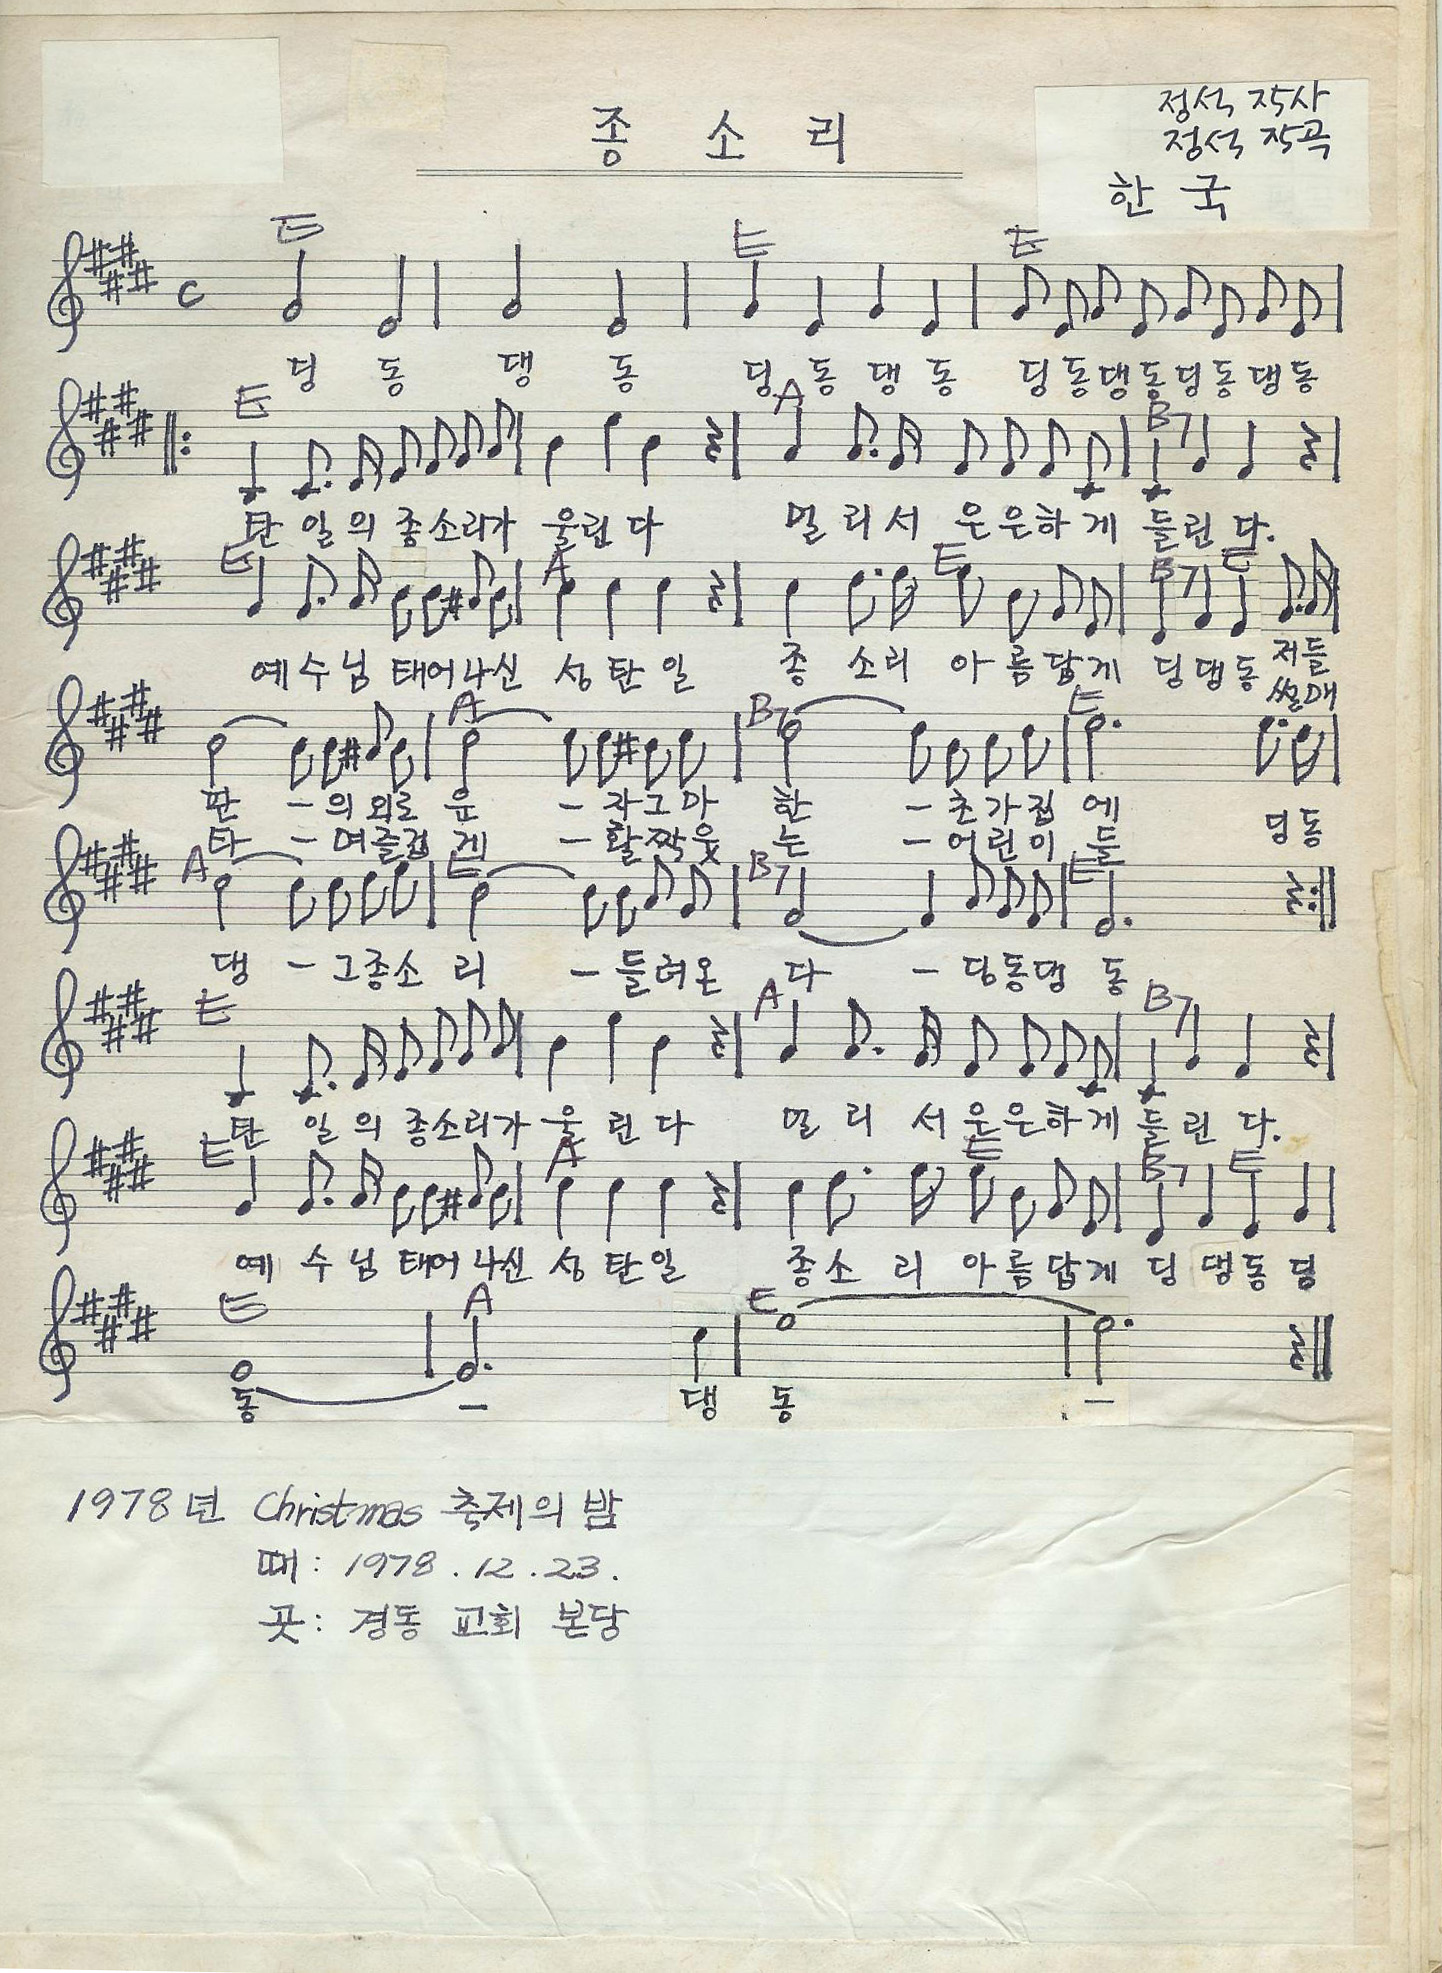 종 소 리
정석 작사
정석 작곡
한 국
E E E
딩 동 댕 동 딩 동 댕 동 딩동댕동딩동댕동
E A B7
탄 일의 종소리가 울린다 멀리서 은은하게 들린다.
E A E B7 E
예수님 태어나신 성탄일 종 소리 아름답게 딩댕동 저들
썰매
A B7 E
판 - 의외로 운 - 자그마 한 - 초가집 에
타 - 며즐겁 게 - 활짝웃 는 - 어린이 들 딩동
A E B7 E
댕 - 그종소 리 - 들려온 다 - 딩동댕 동
E A B7
탄 일의 종소리가 울 린 다 멀 리 서 은은하게 들린 다.
E A E B7 E
예 수님 태어나신 성 탄일 종소 리 아름답게 딩 댕동 딩
E A E
동 - 댕 동 -
1978년 Christmas 축제의 밤
때: 1978. 12. 23.
곳: 경동 교회 본당